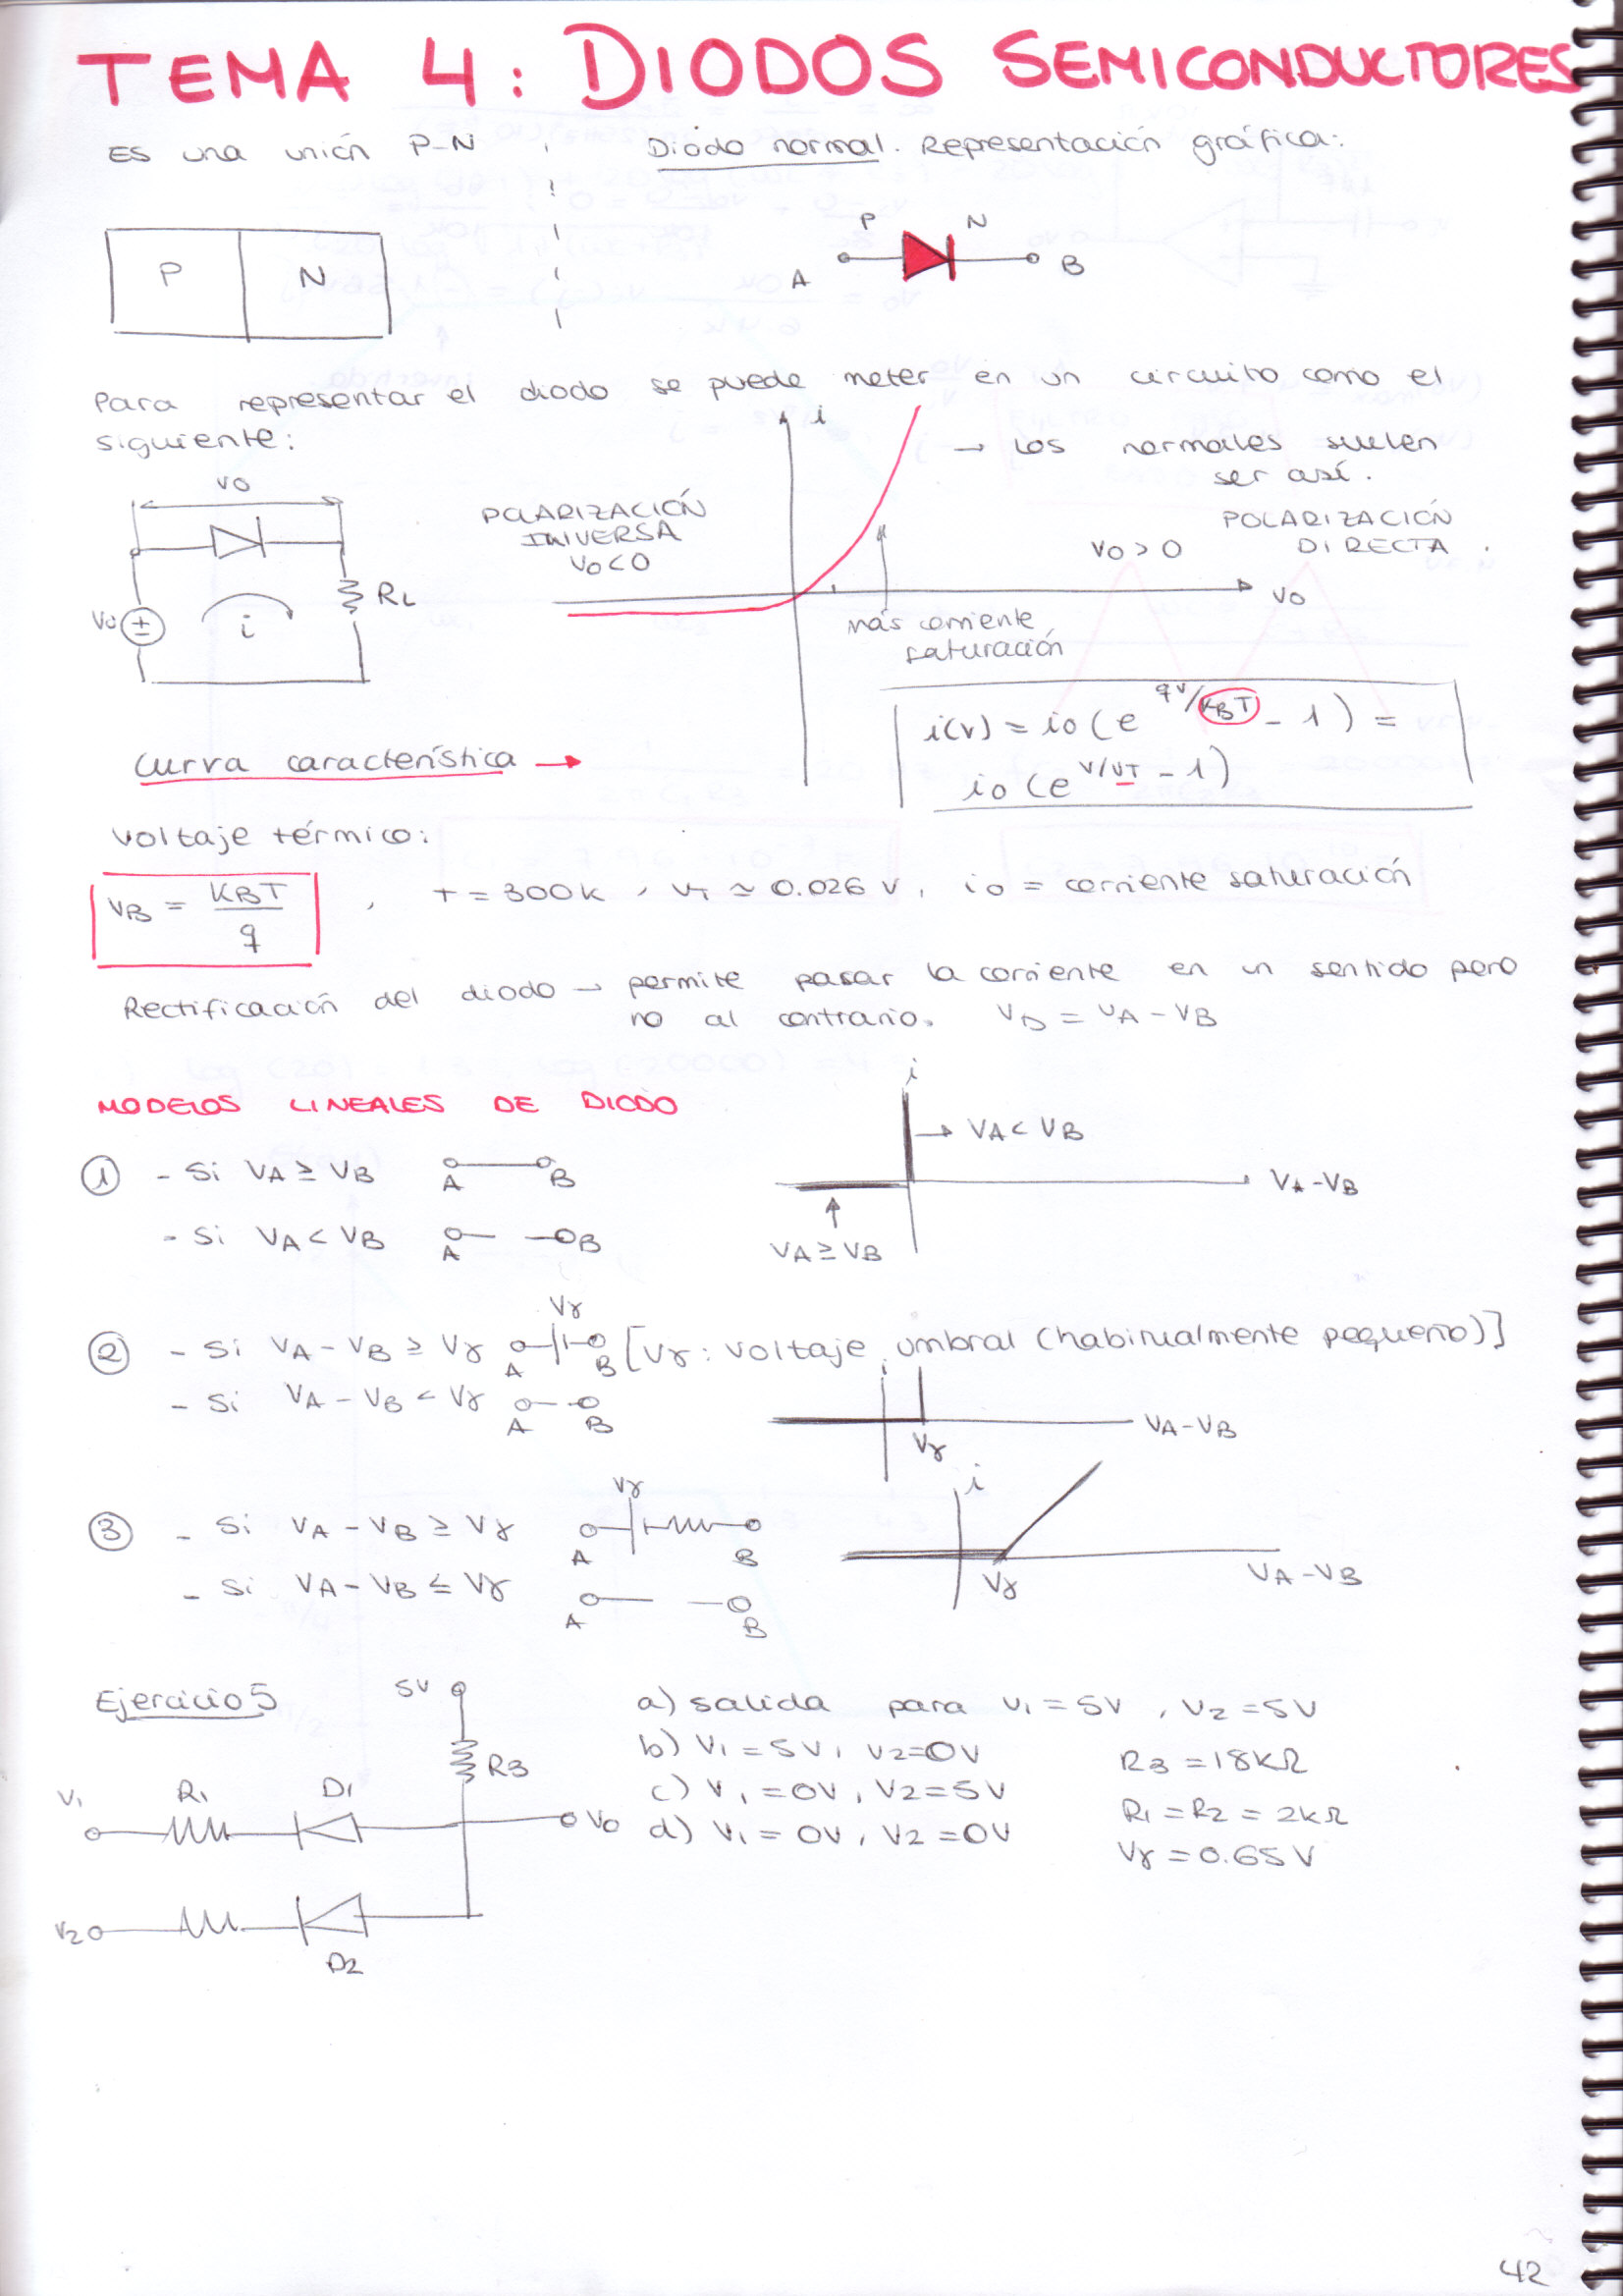 TEMA 4: DIODOS SEMICONDUCTORES
Es una unión P-N
Diodo normal. Representación gráfica:
P N
P N
A B
Para representar el diodo se puede meter en un circuito como el
siguiente:
i
→ Los normales suelen
ser así.
VO
POLARIZACIÓN
INVERSA
VO<0
POLARIZACIÓN
VO>0 DIRECTA.
RL
i
VO
más corriente
saturación
i(v) = io (e^qV/KBT - 1) =
io (e^V/VT - 1)
Curva característica →
Voltaje térmico:
VB = KBT/q , T = 300K , VT ≃ 0.026 V, io = corriente saturación
Rectificación del diodo → permite pasar la corriente en un sentido pero
no al contrario. VD = VA - VB
MODELOS LINEALES DE DIODO
i
→ VA < VB
① - Si VA ≥ VB A B
VA-VB
- Si VA < VB A B
VA ≥ VB
Vγ
② - Si VA - VB ≥ Vγ A B [Vγ: voltaje umbral (habitualmente pequeño)]
i
- Si VA - VB < Vγ A B
VA-VB
Vγ
Vγ
i
③ - Si VA - VB ≥ Vγ A B
- Si VA - VB ≤ Vγ A B
Vγ
VA-VB
Ejercicio 5
5V
a) salida para V1 = 5V , V2 = 5V
b) V1 = 5V, V2=0V
R3
R3 = 18KΩ
V1 R1 D1
c) V1 = 0V, V2 = 5V
R1 = R2 = 2KΩ
VO
d) V1 = 0V, V2 = 0V
Vγ = 0.65 V
V2
D2
42